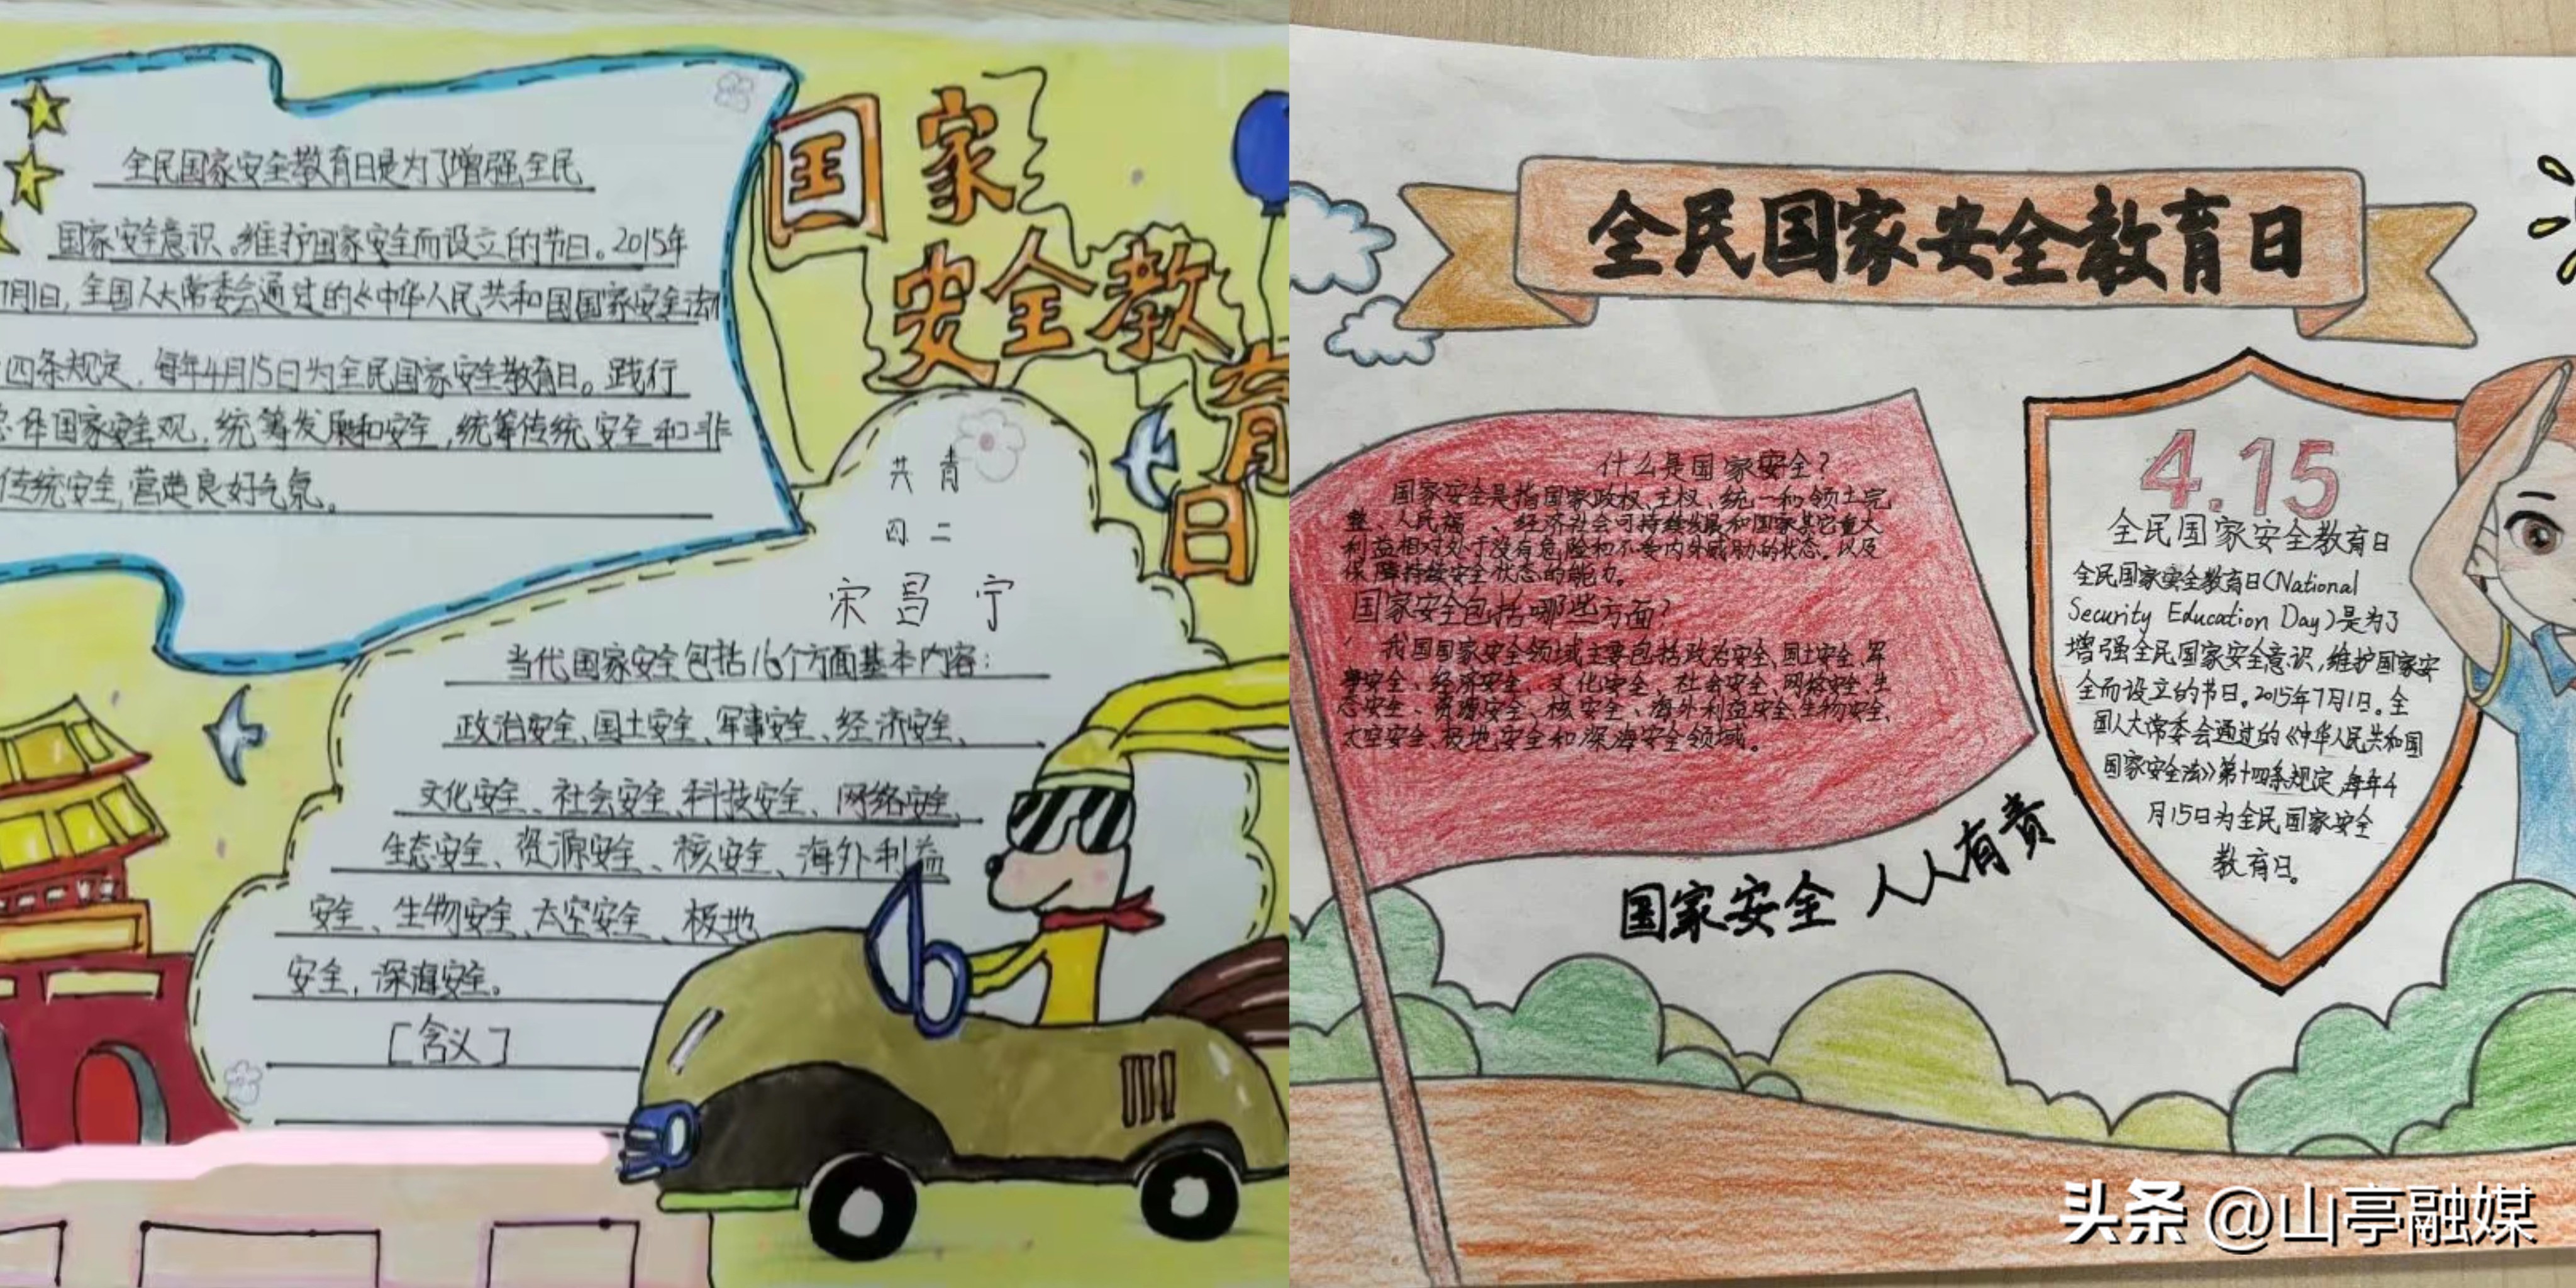 全民国家安全教育日是为了增强全民
国家安全意识。维护国家安全而设立的节日。2015年
7月1日,全国人大常委会通过的《中华人民共和国国家安全法
四条规定,每年4月15日为全民国家安全教育日。践行
总体国家安全观,统筹发展和安全,统筹传统安全和非
传统安全,营造良好气氛。
国家
安全教
育
日
共青
四二
宋昌宁
当代国家安全包括16个方面基本内容:
政治安全、国土安全、军事安全、经济安全、
文化安全、社会安全、科技安全、网络安全、
生态安全、资源安全、核安全、海外利益
安全、生物安全、太空安全、极地
安全,深海安全。
[含义]
全民国家安全教育日
什么是国家安全?
国家安全是指国家政权、主权、统一和领土完
整、人民福、经济社会可持续发展和国家其它重大
利益相对处于没有危险和不受内外威胁的状态。以及
保障持续安全状态的能力。
国家安全包括哪些方面?
我国国家安全领域主要包括政治安全、国土安全、军
事安全、经济安全、文化安全、社会安全、网络安全、生
态安全、资源安全、核安全、海外利益安全、生物安全、
太空安全、极地安全和深海安全领域。
国家安全 人人有责
4.15
全民国家安全教育日
全民国家安全教育日(National
Security Education Day)是为了
增强全民国家安全意识,维护国家安
全而设立的节日。2015年7月1日。全
国人大常委会通过的《中华人民共和国
国家安全法》第十四条规定,每年4
月15日为全民国家安全
教育日。
头条 @山亭融媒